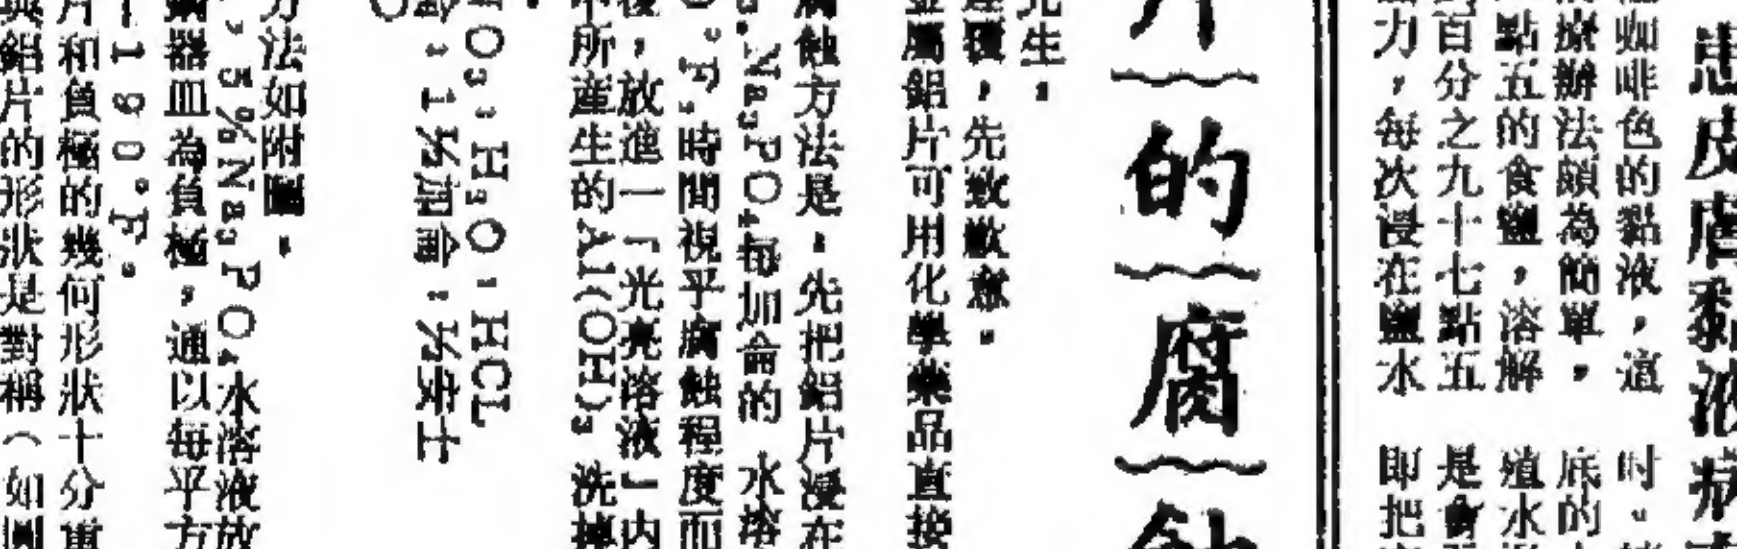 患皮膚黏液病
咖啡色的黏液，這
時。
療辦法頗為簡單，
底的
點五的食鹽，溶解
殖水
百分之九十七點五
是會
力，每次浸在鹽水
即把
片的腐蝕
先生：
覆，先致歉意。
金屬鋁片可用化學藥品直接
腐蝕方法是：先把鋁片浸在
Na₃PO₄每加侖的 水溶
°F，時間視乎腐蝕程度而
後，放進一「光亮溶液」內
所產生的Al(OH)₃ 洗掉
HNO₃：H₂O：HCL
侖：1½加侖：½安士
方法如附圖。
，5％Na₃PO₄水溶液放
器皿為負極，通以每平方
－190°F。
片和負極的幾何形狀十分重
與鋁片的形狀是對稱（如圓